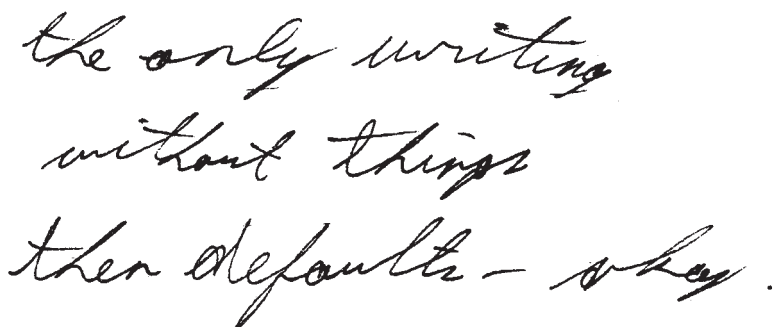 the only writing
without things
then defaults – okay.